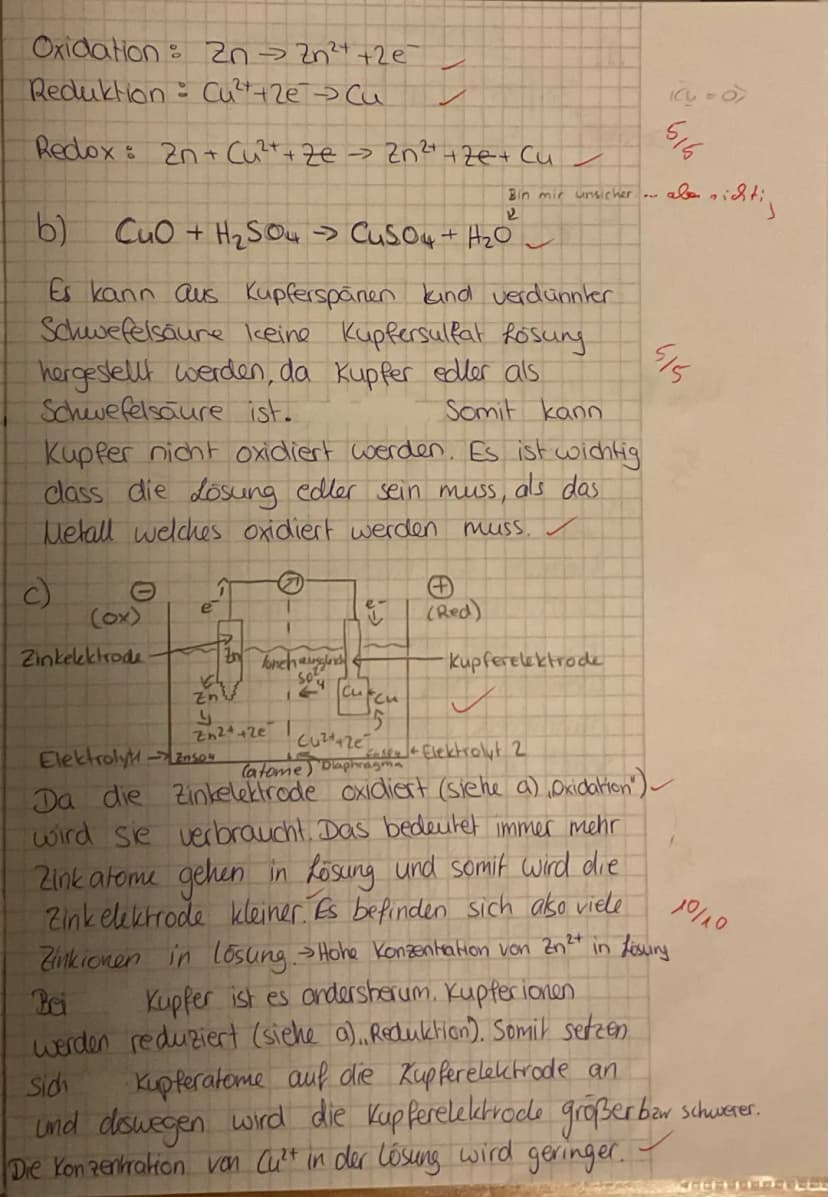 Oxidation: Zn → Zn²⁺ + 2e⁻
Reduktion: Cu²⁺ + 2e⁻ → Cu
(Cu = 0)
5/5
Redox: Zn + Cu²⁺ + 2e → Zn²⁺ + 2e + Cu
Bin mir unsicher ... aber richtig
b) CuO + H₂SO₄ → CuSO₄ + H₂O
Es kann aus Kupferspänen und verdünnter
Schwefelsäure keine Kupfersulfat Lösung
5/5
hergestellt werden, da Kupfer edler als
Schwefelsäure ist. Somit kann
Kupfer nicht oxidiert werden. Es ist wichtig
dass die Lösung edler sein muss, als das
Metall welches oxidiert werden muss.
c) ⊖ ⊕
e⁻ e⁻
(Ox) (Red)
Zinkelektrode Zn Ionenausgleich Kupferelektrode
SO₄
Zn Cu Cu
Zn²⁺ + 2e⁻ Cu²⁺ + 2e⁻
Elektrolyt 1 → ZnSO₄ CuSO₄ ← Elektrolyt 2
(atome) Diaphragma
Da die Zinkelektrode oxidiert (siehe a) „Oxidation")
wird sie verbraucht. Das bedeutet immer mehr
Zinkatome gehen in Lösung und somit wird die
Zinkelektrode kleiner. Es befinden sich also viele
10/10
Zinkionen in Lösung. → Hohe Konzentration von Zn²⁺ in Lösung
Bei Kupfer ist es andersherum. Kupferionen
werden reduziert (siehe a) „Reduktion). Somit setzen
sich Kupferatome auf die Kupferelektrode an
und deswegen wird die Kupferelektrode größer bzw schwerer.
Die Konzentration von Cu²⁺ in der Lösung wird geringer.